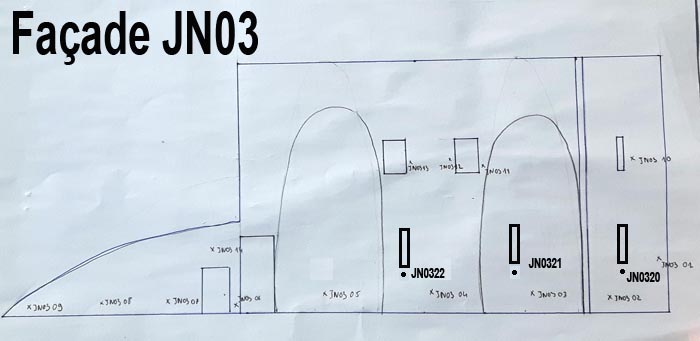 Façade JN03
JN03 13
JN03 12
JN03 11
JN03 10
JN03 14
JN0322
JN0321
JN0320
JN03 01
JN03 09
JN03 08
JN03 07
JN03 06
JN03 05
JN03 04
JN03 03
JN03 02